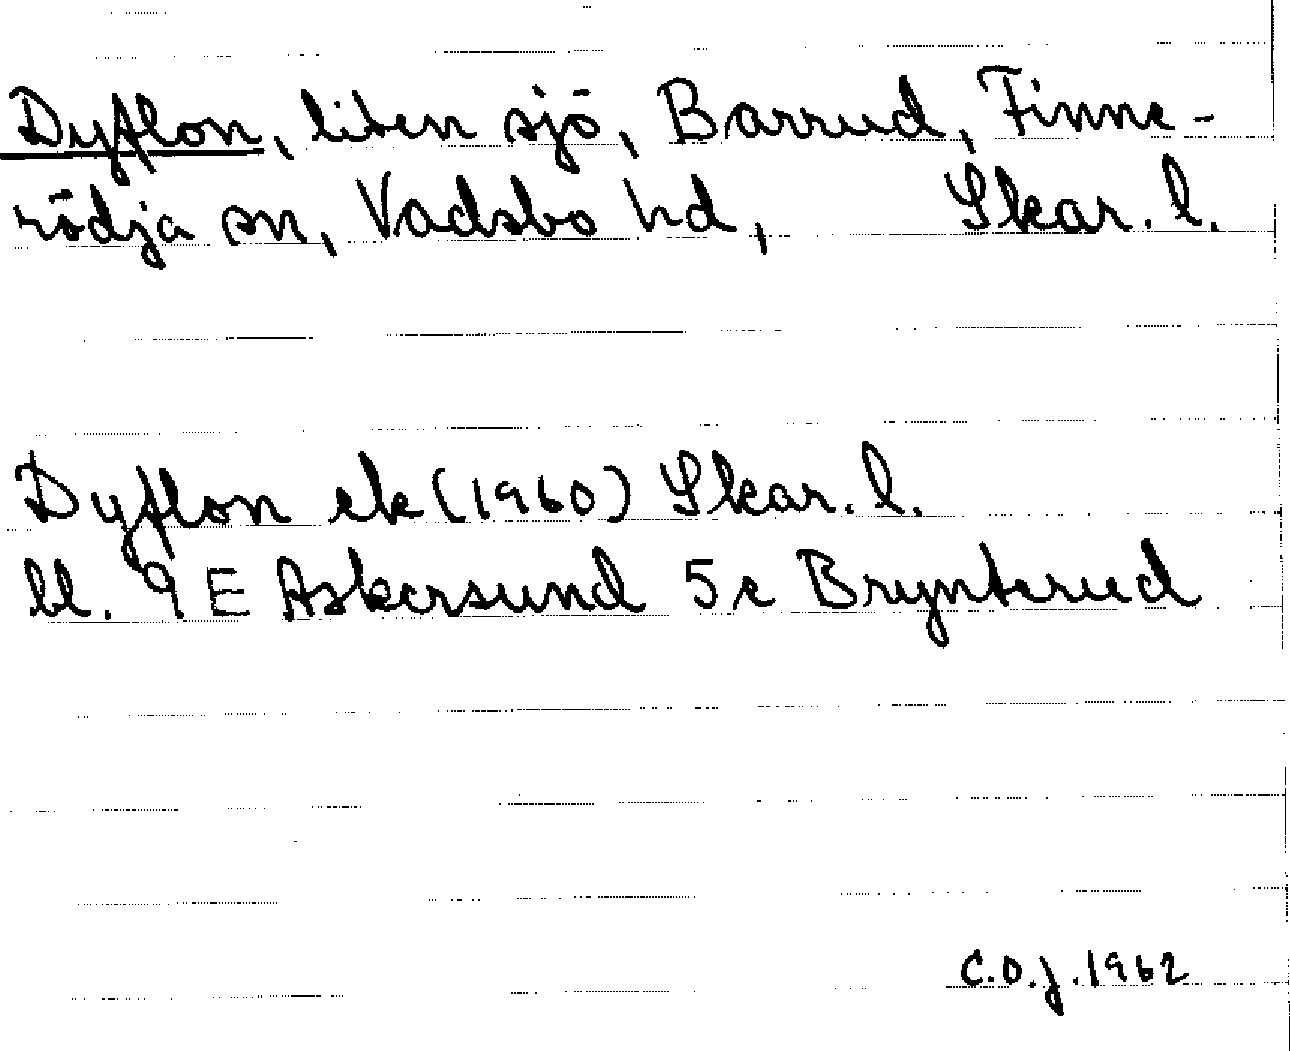 Dyflon, liten sjö, Barrud, Finne-
rödja sn, Vadsbo hd, Skar. l.
Dyflon ek (1960) Skar. l.
bl. 9 E Askersund 5c Brynterud
C.O.J. 1962